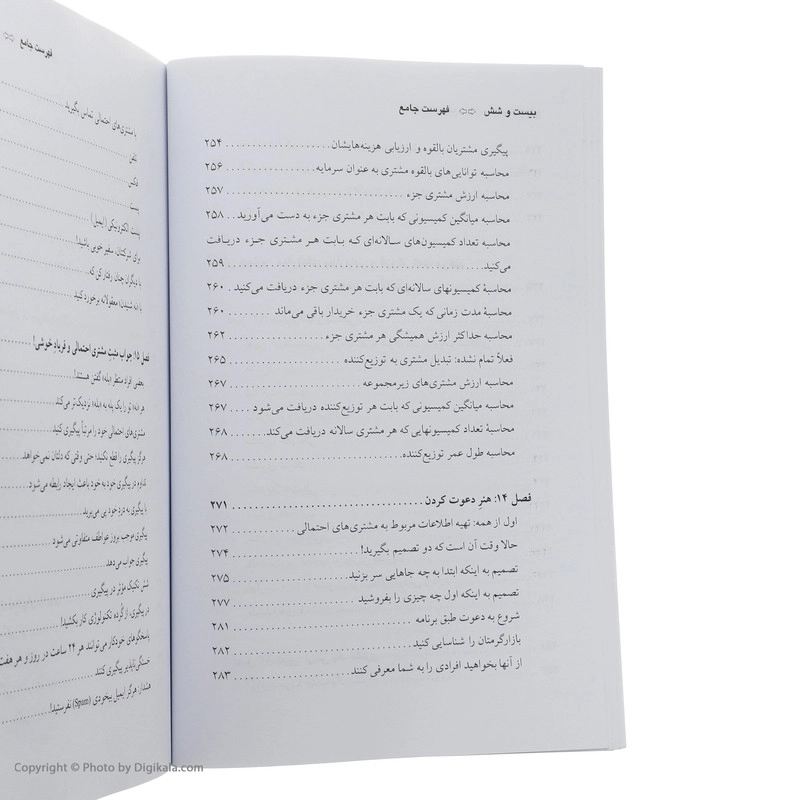 بیست و شش ⇨⇦ فهرست جامع
پیگیری مشتریان بالقوه و ارزیابی هزینه‌هایشان ........ ۲۵۴
محاسبه توانایی‌های بالقوه مشتری به عنوان سرمایه ........ ۲۵۶
محاسبه ارزش مشتری جزء ........ ۲۵۷
محاسبه میانگین کمیسیونی که بابت هر مشتری جزء به دست می‌آورید .. ۲۵۸
محاسبه تعداد کمیسیون‌های سالانه‌ای که بابت هر مشتری جزء دریافت
می‌کنید ........ ۲۵۹
محاسبهٔ کمیسیونهای سالانه‌ای که بابت هر مشتری جزء دریافت می‌کنید . ۲۶۰
محاسبهٔ مدت زمانی که یک مشتری جزء خریدار باقی می‌ماند ........ ۲۶۰
محاسبه حداکثر ارزش همیشگی هر مشتری جزء ........ ۲۶۲
فعلاً تمام نشده: تبدیل مشتری به توزیع‌کننده ........ ۲۶۵
محاسبه ارزش مشتری‌های زیرمجموعه ........ ۲۶۷
محاسبه میانگین کمیسیونی که بابت هر توزیع‌کننده دریافت می‌شود .... ۲۶۷
محاسبهٔ تعداد کمیسیونهایی که هر مشتری سالانه دریافت می‌کند ..... ۲۶۸
محاسبه طول عمر توزیع‌کننده ........ ۲۶۸
فصل ۱۴: هنر دعوت کردن ........ ۲۷۱
اول از همه: تهیه اطلاعات مربوط به مشتری‌های احتمالی ........ ۲۷۲
حالا وقت آن است که دو تصمیم بگیرید! ........ ۲۷۴
تصمیم به اینکه ابتدا به چه جاهایی سر بزنید ........ ۲۷۵
تصمیم به اینکه اول چه چیزی را بفروشید ........ ۲۷۷
شروع به دعوت طبق برنامه ........ ۲۸۱
بازارگرمتان را شناسایی کنید ........ ۲۸۲
از آنها بخواهید افرادی را به شما معرفی کنند ........ ۲۸۳
فهرست جامع ⇨⇦
با مشتری‌های احتمالی تماس بگیرید ........
تلفن ........
فاکس ........
پست ........
پست الکترونیکی (ایمیل) ........
برای شرکتتان، سفیر خوبی باشید! ........
با دیگران چنان رفتار کن که ........
با نه شنیدن؛ معقولانه برخورد کنید ........
فصل ۱۵: جواب مثبت مشتری احتمالی و فریادِ خوشی! ........
بعضی افراد منتظر «بله» گفتن هستند! ........
هر «نه» تو را یک پله به «بله» نزدیک‌تر می‌کند ........
مشتری‌های احتمالی خود را مرتباً پیگیری کنید ........
هرگز پیگیری را قطع نکنید؛ حتی وقتی که دلتان نمی‌خواهد ........
تداوم در پیگیری خود به خود باعث ایجاد رابطه می‌شود ........
با پیگیری به درد خود پی می‌برید ........
پیگیری موجب بروز عواطف متفاوتی می‌شود ........
پیگیری جواب می‌دهد ........
شش تکنیک مؤثر در پیگیری ........
در پیگیری، از گُرده تکنولوژی کار بکشید! ........
پاسخگوهای خودکار می‌توانند هر ۲۴ ساعت در روز و هر هفت
خستگی‌ناپذیر پیگیری کنند ........
هشدار: هرگز ایمیل بیخودی (Spam) نفرستید! ........
Copyright © Photo by Digikala.com